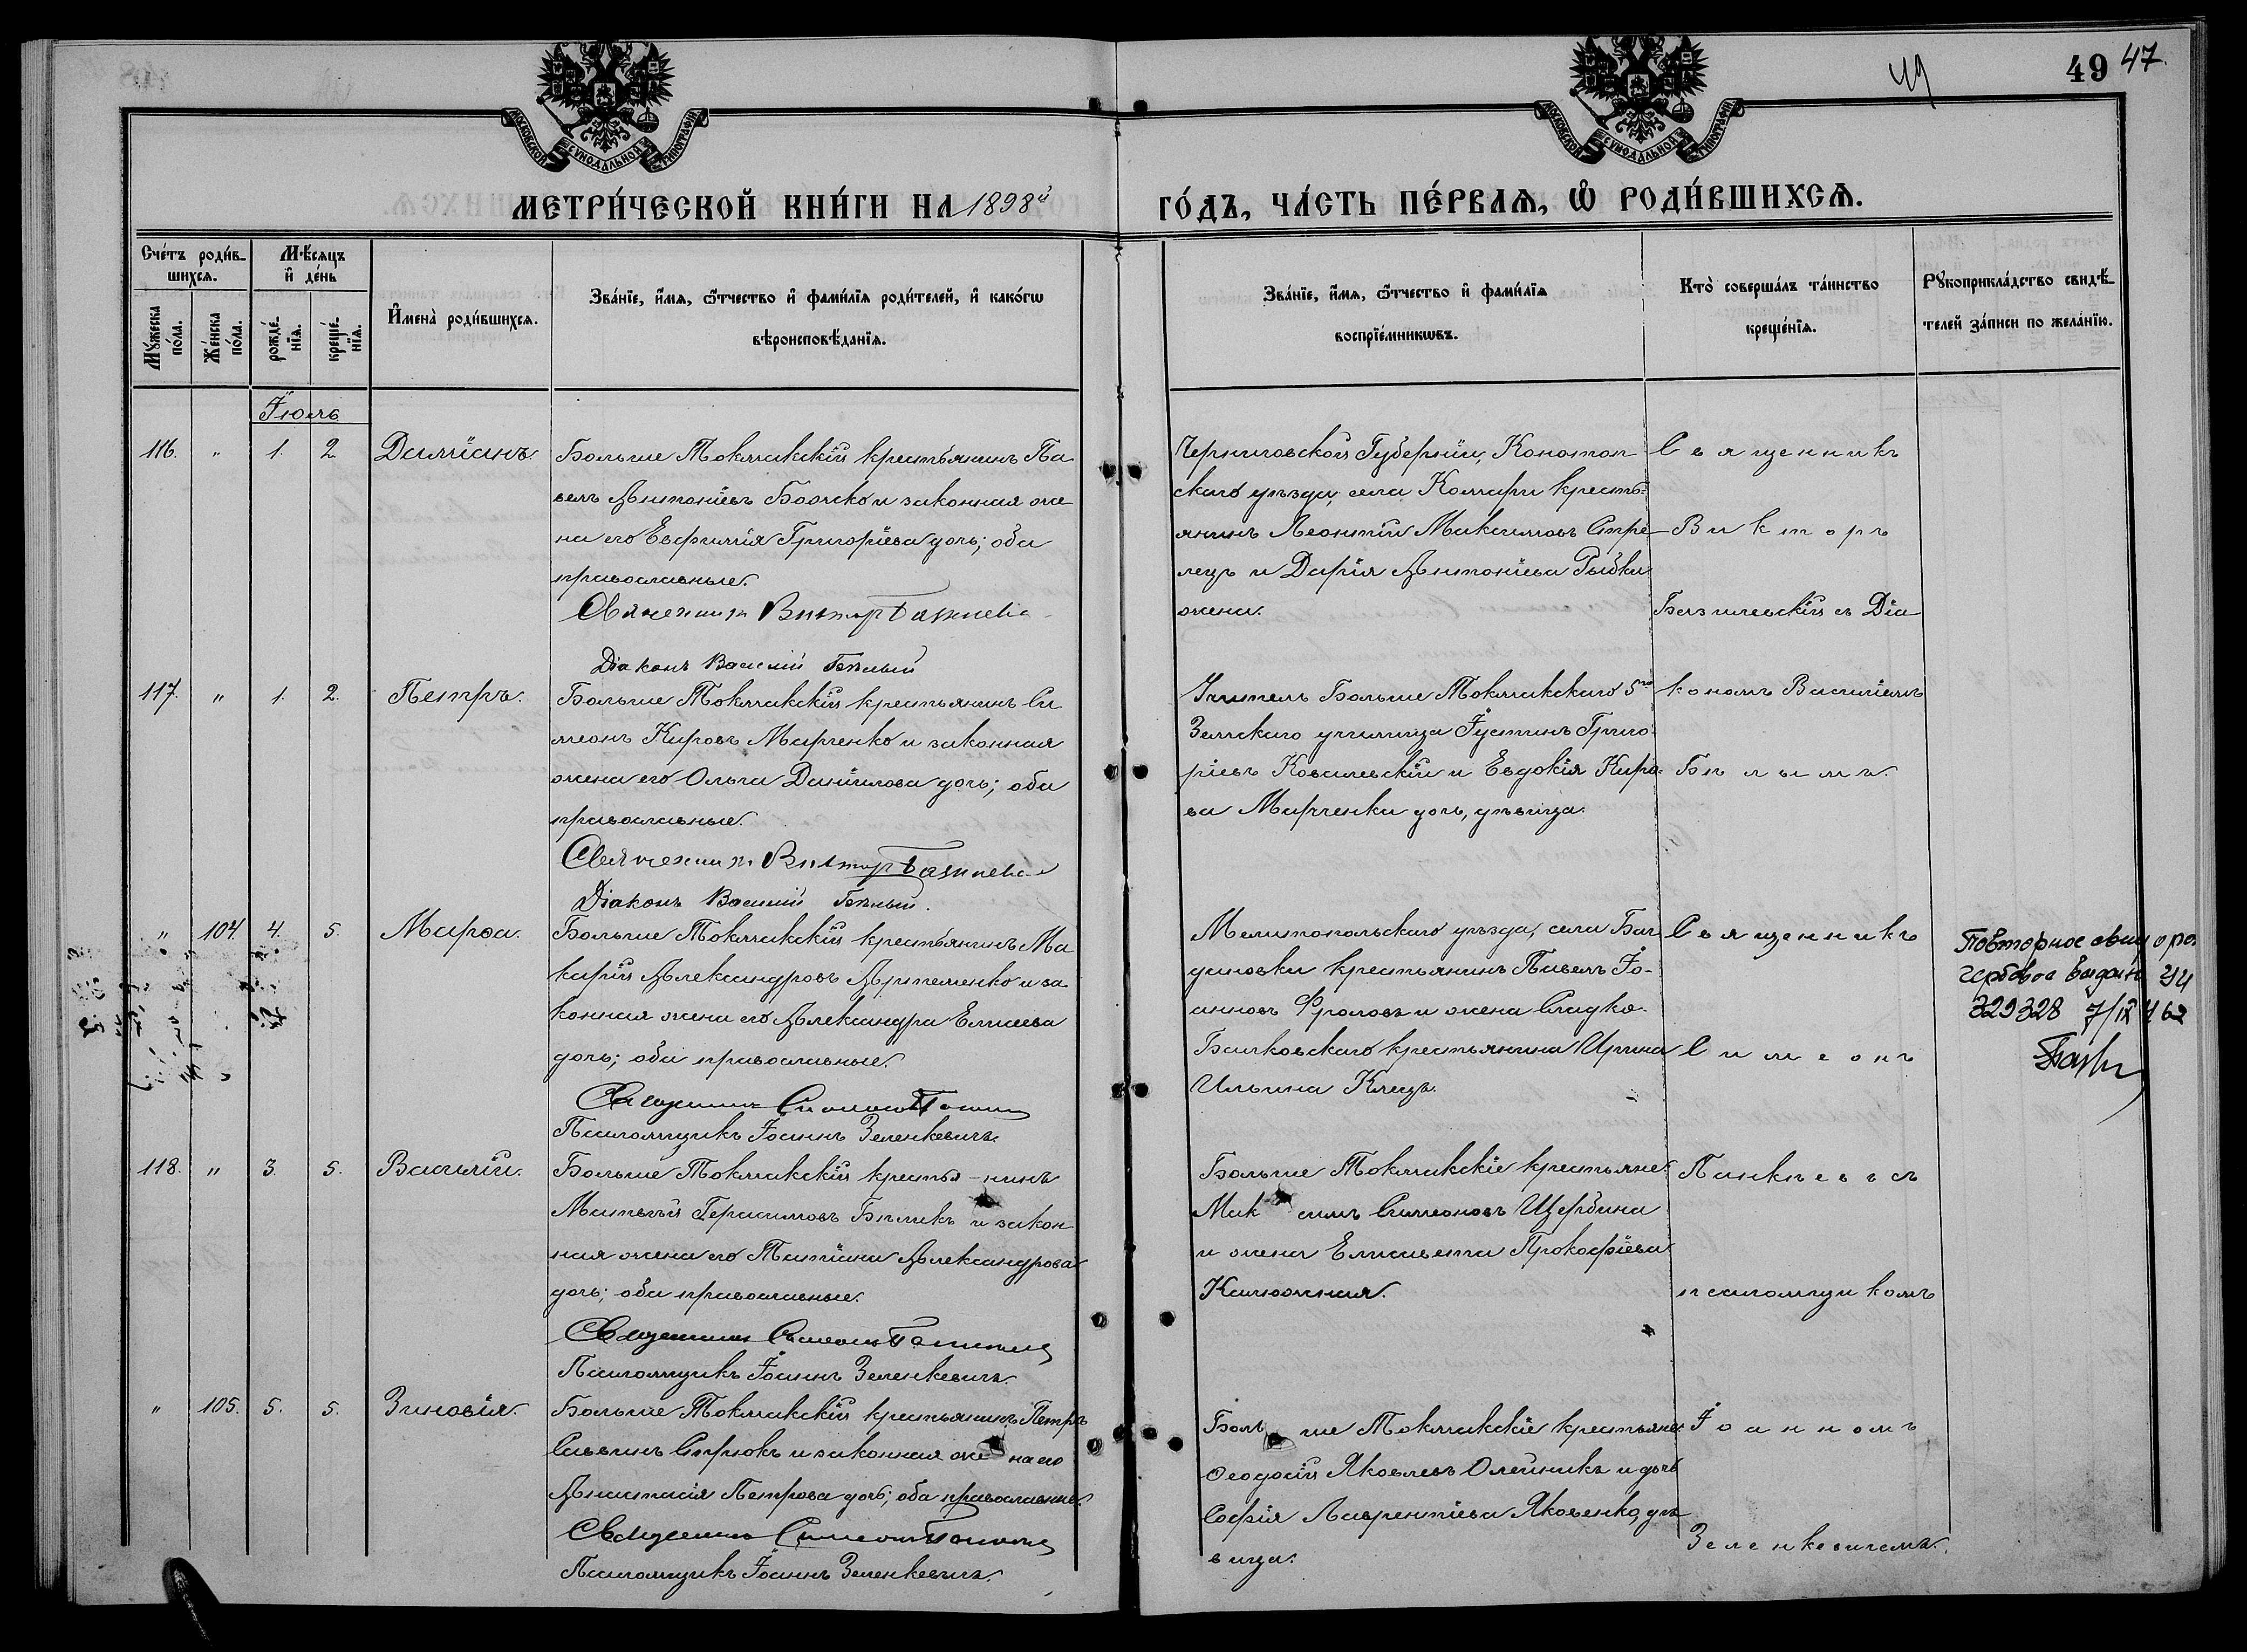 49 47.
49
МОСКОВСКОЙ СУНОДАЛЬНОЙ ТИПОГРАФІИ
МОСКОВСКОЙ СУНОДАЛЬНОЙ ТИПОГРАФІИ
МЕТРИ́ЧЕСКОЙ КНИ́ГИ НА 1898й
ГО́ДЪ, ЧА́СТЬ ПЕ́РВАѦ, Ѡ҆ РОДИ́ВШИХСѦ.
Сче́тъ роди́в-
шихсѧ.
Мꙋжеска
по́ла.
Же́нска
по́ла.
Мѣ́сѧцъ
и҆ де́нь
рожде́-
нїѧ.
креще́-
нїѧ.
И҆мена̀ роди́вшихсѧ.
Зва́нїе, и҆́мѧ, ѻ҆́тчество и҆ фами́лїѧ роди́телей, и҆ како́гѡ
вѣроисповѣ́данїѧ.
Зва́нїе, и҆́мѧ, ѻ҆́тчество и҆ фами́лїѧ
воспрїе́мникѡвъ.
Кто̀ соверша́лъ та́инство
креще́нїѧ.
Рꙋкоприкла́дство свидѣ́-
телей за́писи по жела́нїю.
Іюль
116. " 1. 2 Даміанъ.
Больше Токмакскій крестьянинъ Па
велъ Антоніевъ Божко и законная же
на его Евфимія Григоріева дочь; оба
православные.
Священникъ Викторъ Базилевс
Діаконъ Василій Бѣлый
Черниговской Губерніи, Конотоп
скаго уѣзда, села Комари кресть-
янинъ Леонтій Максимовъ Стре-
лецъ и Дарія Антоніева Рыбка
жена.
Священникъ
Викторъ
Базилевскій съ Діа-
кономъ Василіемъ
Бѣлымъ.
117. " 1. 2. Петръ.
Больше Токмакскій крестьянинъ Си
меонъ Кировъ Марченко и законная
жена его Ольга Даніилова дочь; оба
православные.
Священникъ Викторъ Базилевс
Діаконъ Василій Бѣлый.
Учитель Больше Токмакскаго 5го
Земскаго училища Іустинъ Григо
ріевъ Ковалевскій и Евдокія Киро-
ва Марченка дочь, дѣвица.
" 104. 4. 5. Марѳа.
Больше Токмакскій крестьянинъ Ма
карій Александровъ Артеменко и за
конная жена его Александра Елисеева
дочь; оба православные.
Священникъ Симеонъ
Псаломщикъ Іоаннъ Зеленкевичъ.
Мелитопольскаго уѣзда, села
крестьянинъ Павелъ Іо-
анновъ Фроловъ и жена Сладко-
Балковскаго крестьянина Ирина
Ильина Клецъ.
Священникъ
Симеонъ
Панкѣевъ съ
псаломщикомъ
Іоанномъ
Зеленкевичемъ.
Повторное свид о рож
гербовое выдано
329328 7/IX 62
118. " 3. 5. Василій.
Больше Токмакскій крестья-нинъ
Матвѣй Герасимовъ Бѣликъ и закон
ная жена его Татіана Александрова
дочь; оба православные.
Священникъ Симеонъ
Псаломщикъ Іоаннъ Зеленкевичъ.
Больше Токмакскіе крестьяне:
Мак симъ Симеоновъ Щербина
и жена Елисавета Прокофіева
Калюжная.
" 105. 5. 5. Зиновія.
Больше Токмакскій крестьянинъ Петръ
Саввинъ Стрюкъ и законная же на его
Анастасія Петрова дочь; оба православные.
Священникъ Симеонъ
Псаломщикъ Іоаннъ Зеленкевичъ.
Боль ше Токмакскіе крестьяне
Ѳеодосій Яковлевъ Олейникъ и дочь
Софія Лаврентіева Яковенко, дѣ-
вица.